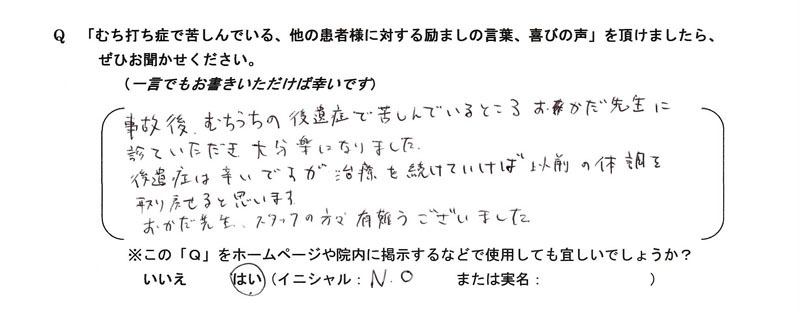 Q 「むち打ち症で苦しんでいる、他の患者様に対する励ましの言葉、喜びの声」を頂けましたら、
ぜひお聞かせください。
（一言でもお書きいただけば幸いです）
事故後、むちうちの後遺症で苦しんでいるところ おかだ先生に
診ていただき 大分楽になりました。
後遺症は辛いですが 治療を続けていけば 以前の体調を
取り戻せると思います
おかだ先生、スタッフの方々 有難うございました
※この「Q」をホームページや院内に掲示するなどで使用しても宜しいでしょうか？
いいえ はい（イニシャル：N.O または実名： ）